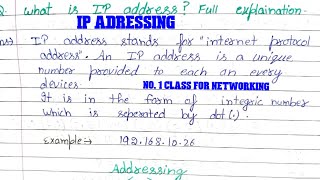 Q. what is IP address? Full explaination.
IP ADRESSING
Ans→ IP address stands for "internet protocol
address". An IP address is a unique
number provided to each an every
devices.
NO. 1 CLASS FOR NETWORKING
It is in the form of integric number
which is seperated by dot (.).
Example:→ 192.168.10.26
Addressing